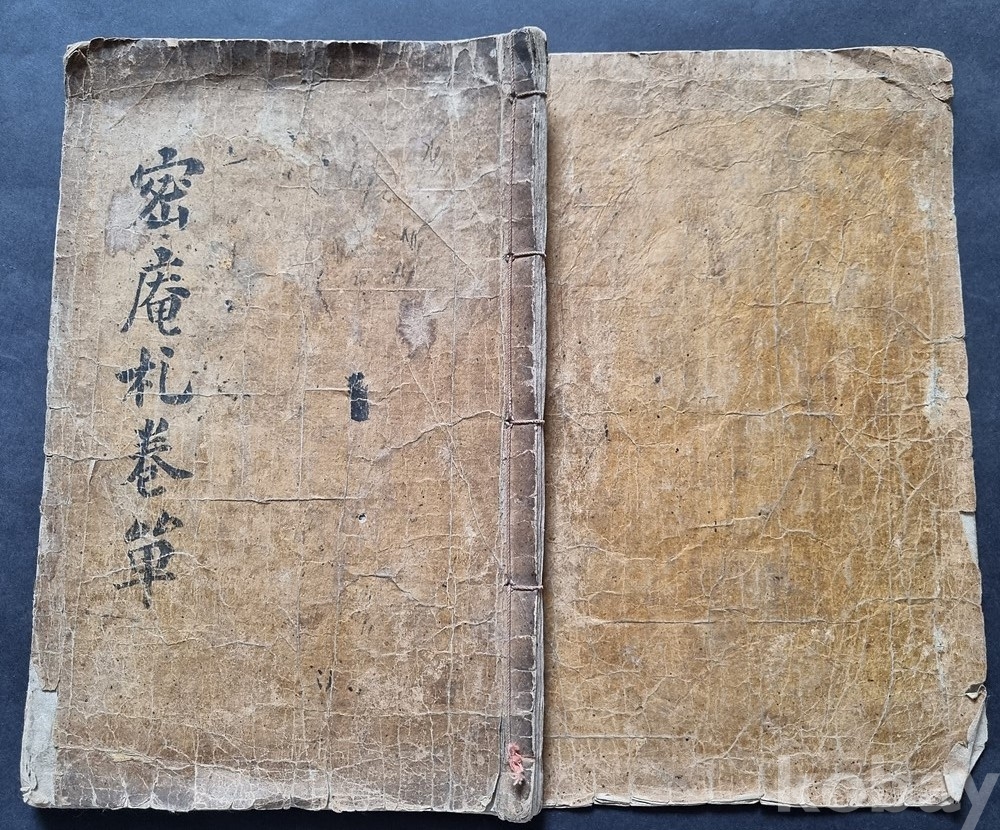 密庵札卷単
kobay